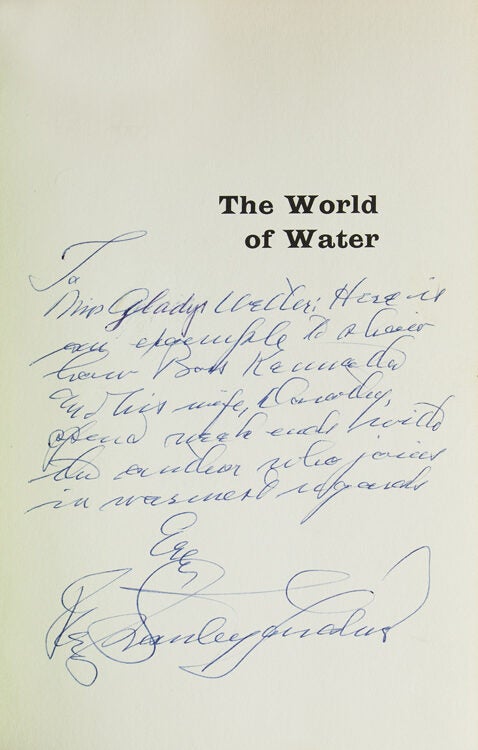 The World
of Water
To
Miss Gladys Weller: Here is
an example to show
how Boss Kennedy
and his wife, Dorothy,
spend week ends with
the author who joins
in warmest regards
Ever
Stanley